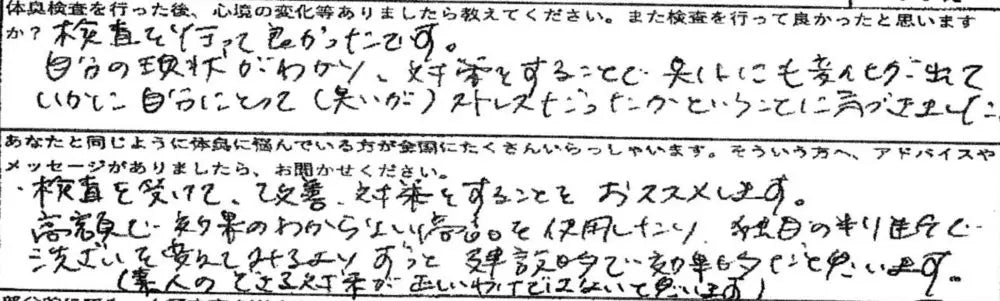 体臭検査を行った後、心境の変化等ありましたら教えてください。また検査を行って良かったと思います
か？検査を行って良かったです。
自分の現状がわかり、対策をすることで 臭いにも変化が出て
いかに自分にとって（臭いが）ストレスだったかということに気づきました。
あなたと同じように体臭に悩んでいる方が全国にたくさんいらっしゃいます。そういう方へ、アドバイスや
メッセージがありましたら、お聞かせください。
・検査を受けて、改善、対策をすることをおススメします。
高額で効果のわからない商品を使用したり、独自の判断で
洗ざいを変えてみるよりずっと建設的で効率的だと思います。
（素人のできる対策が正しいわけではないと思います）